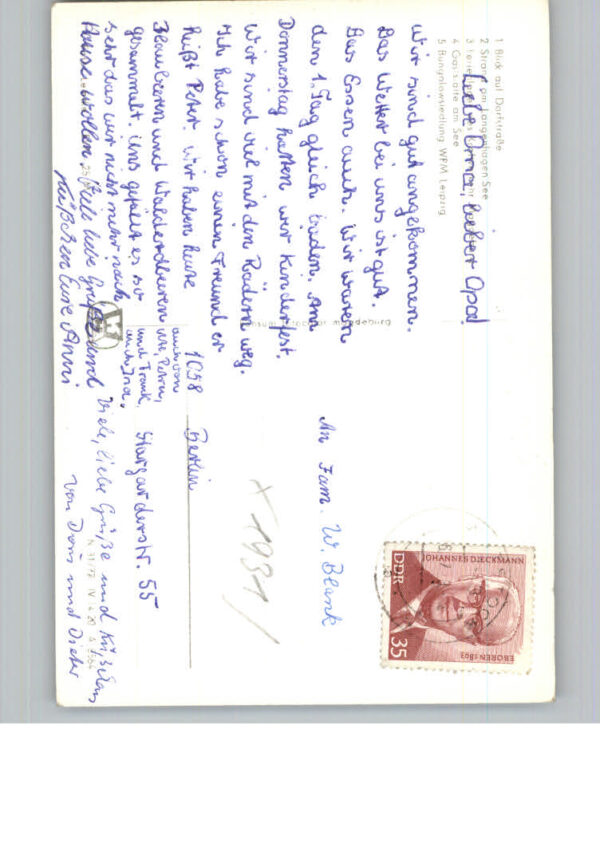 1 Blick auf Dorfstraße
2 Strand am Langenhagen See
4 Gaststätte am See
5 Bungalowsiedlung WPM Leipzig
Liebe Oma, lieber Opa!
Wir sind gut angekommen.
Das Wetter bei uns ist gut.
Das Essen auch. Wir waren
den 1. Tag gleich baden. Am
Donnerstag hatten wir Kinderfest.
Wir sind viel mit den Rädern weg.
Ich habe schon einen Freund er
heißt Peter. Wir haben heute
Blaubeeren und Walderdbeeren
gesammelt. Uns gefällt es so
sehr das wir nicht mehr nach
Hause wollen. Viele liebe Grüße und
Küßchen Eure Anni
auch von
Ute, Petra,
und Frank,
Viele, liebe Grüße und Küßchen
von Doris und Dieter
Magdeburg
An Fam. W. Blank
1058 Berlin
Stargarderstr. 55
x 1931/
JOHANNES DIECKMANN
GEBOREN 1893
DDR
35